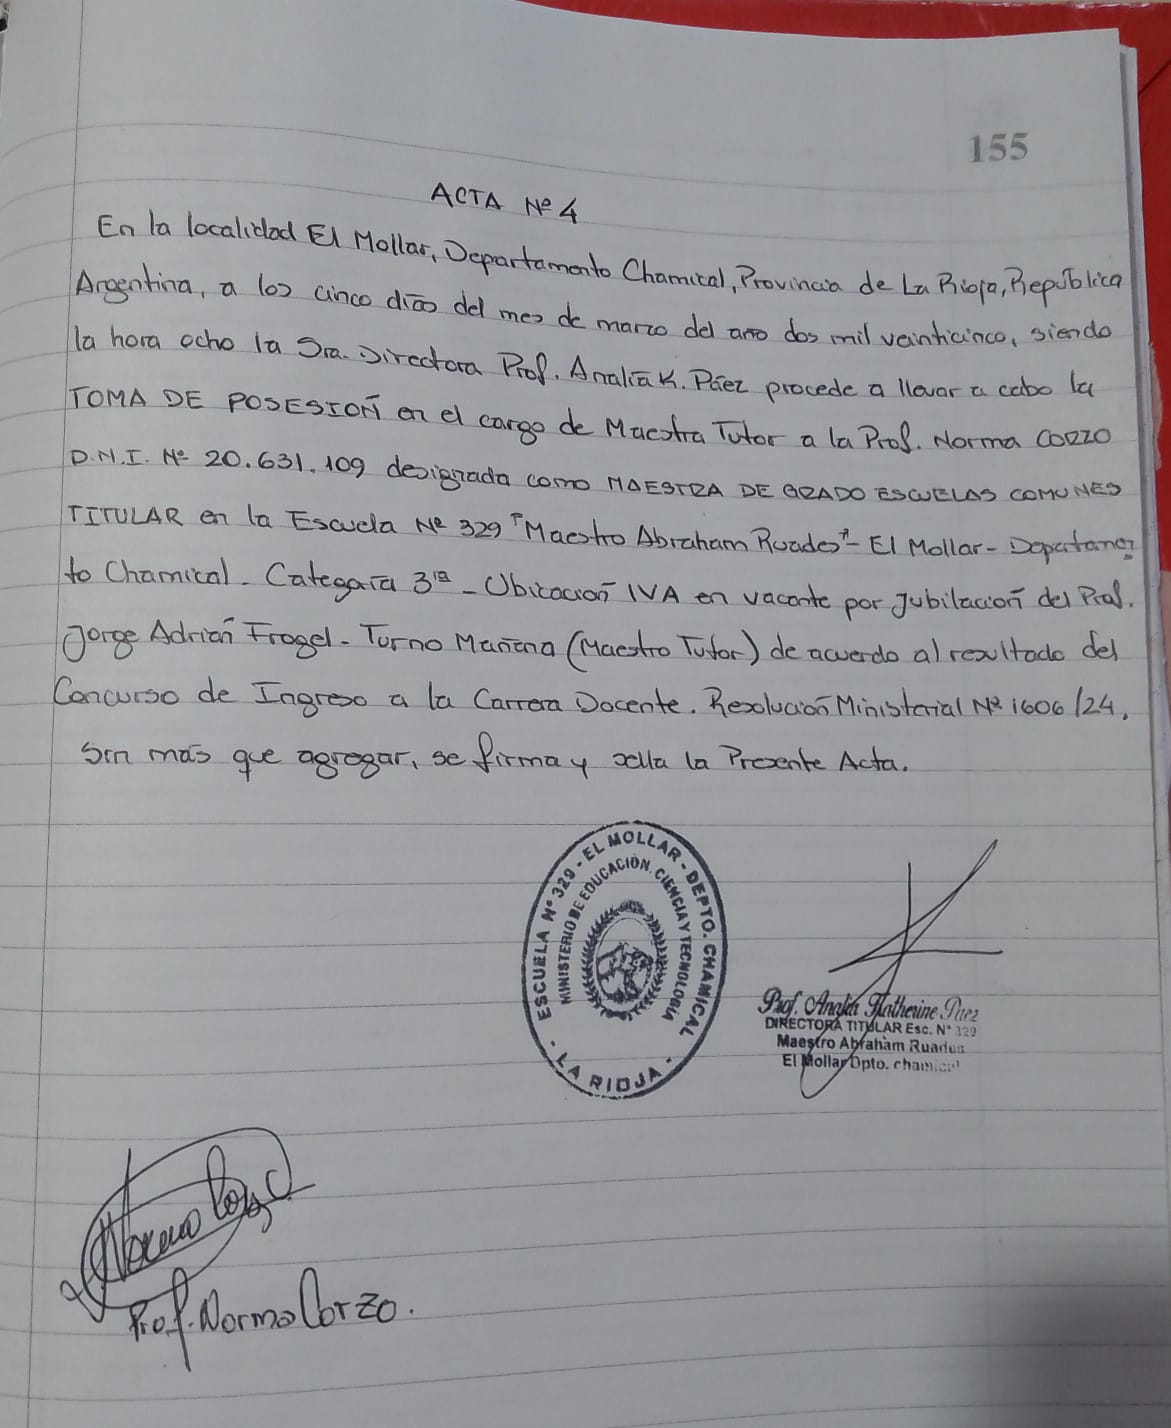 155
ACTA Nº 4
En la localidad El Mollar, Departamento Chamical, Provincia de La Rioja, República
Argentina, a los cinco días del mes de marzo del año dos mil veinticinco, siendo
la hora ocho la Sra. Directora Prof. Analía K. Páez procede a llevar a cabo la
TOMA DE POSESIÓN en el cargo de Maestra Tutor a la Prof. Norma CORZO
D.N.I. Nº 20.631.109 designada como MAESTRA DE GRADO ESCUELAS COMUNES
TITULAR en la Escuela Nº 329 "Maestro Abraham Ruades" - El Mollar - Depatamen
to Chamical - Categoría 3ra - Ubicación IVA en vacante por Jubilación del Prof.
Jorge Adrián Frogel - Turno Mañana (Maestro Tutor) de acuerdo al resultado del
Concurso de Ingreso a la Carrera Docente. Resolución Ministerial Nº 1606/24.
Sin más que agregar, se firma y sella la Presente Acta.
ESCUELA Nº 329 - EL MOLLAR - DEPTO. CHAMICAL
MINISTERIO DE EDUCACIÓN, CIENCIA Y TECNOLOGIA
· LA RIOJA ·
Prof. Analía Katherine Paez
DIRECTORA TITULAR Esc. N° 329
Maestro Abraham Ruades
El Mollar Dpto. chamical
Norma Corzo
Prof. Norma Corzo.